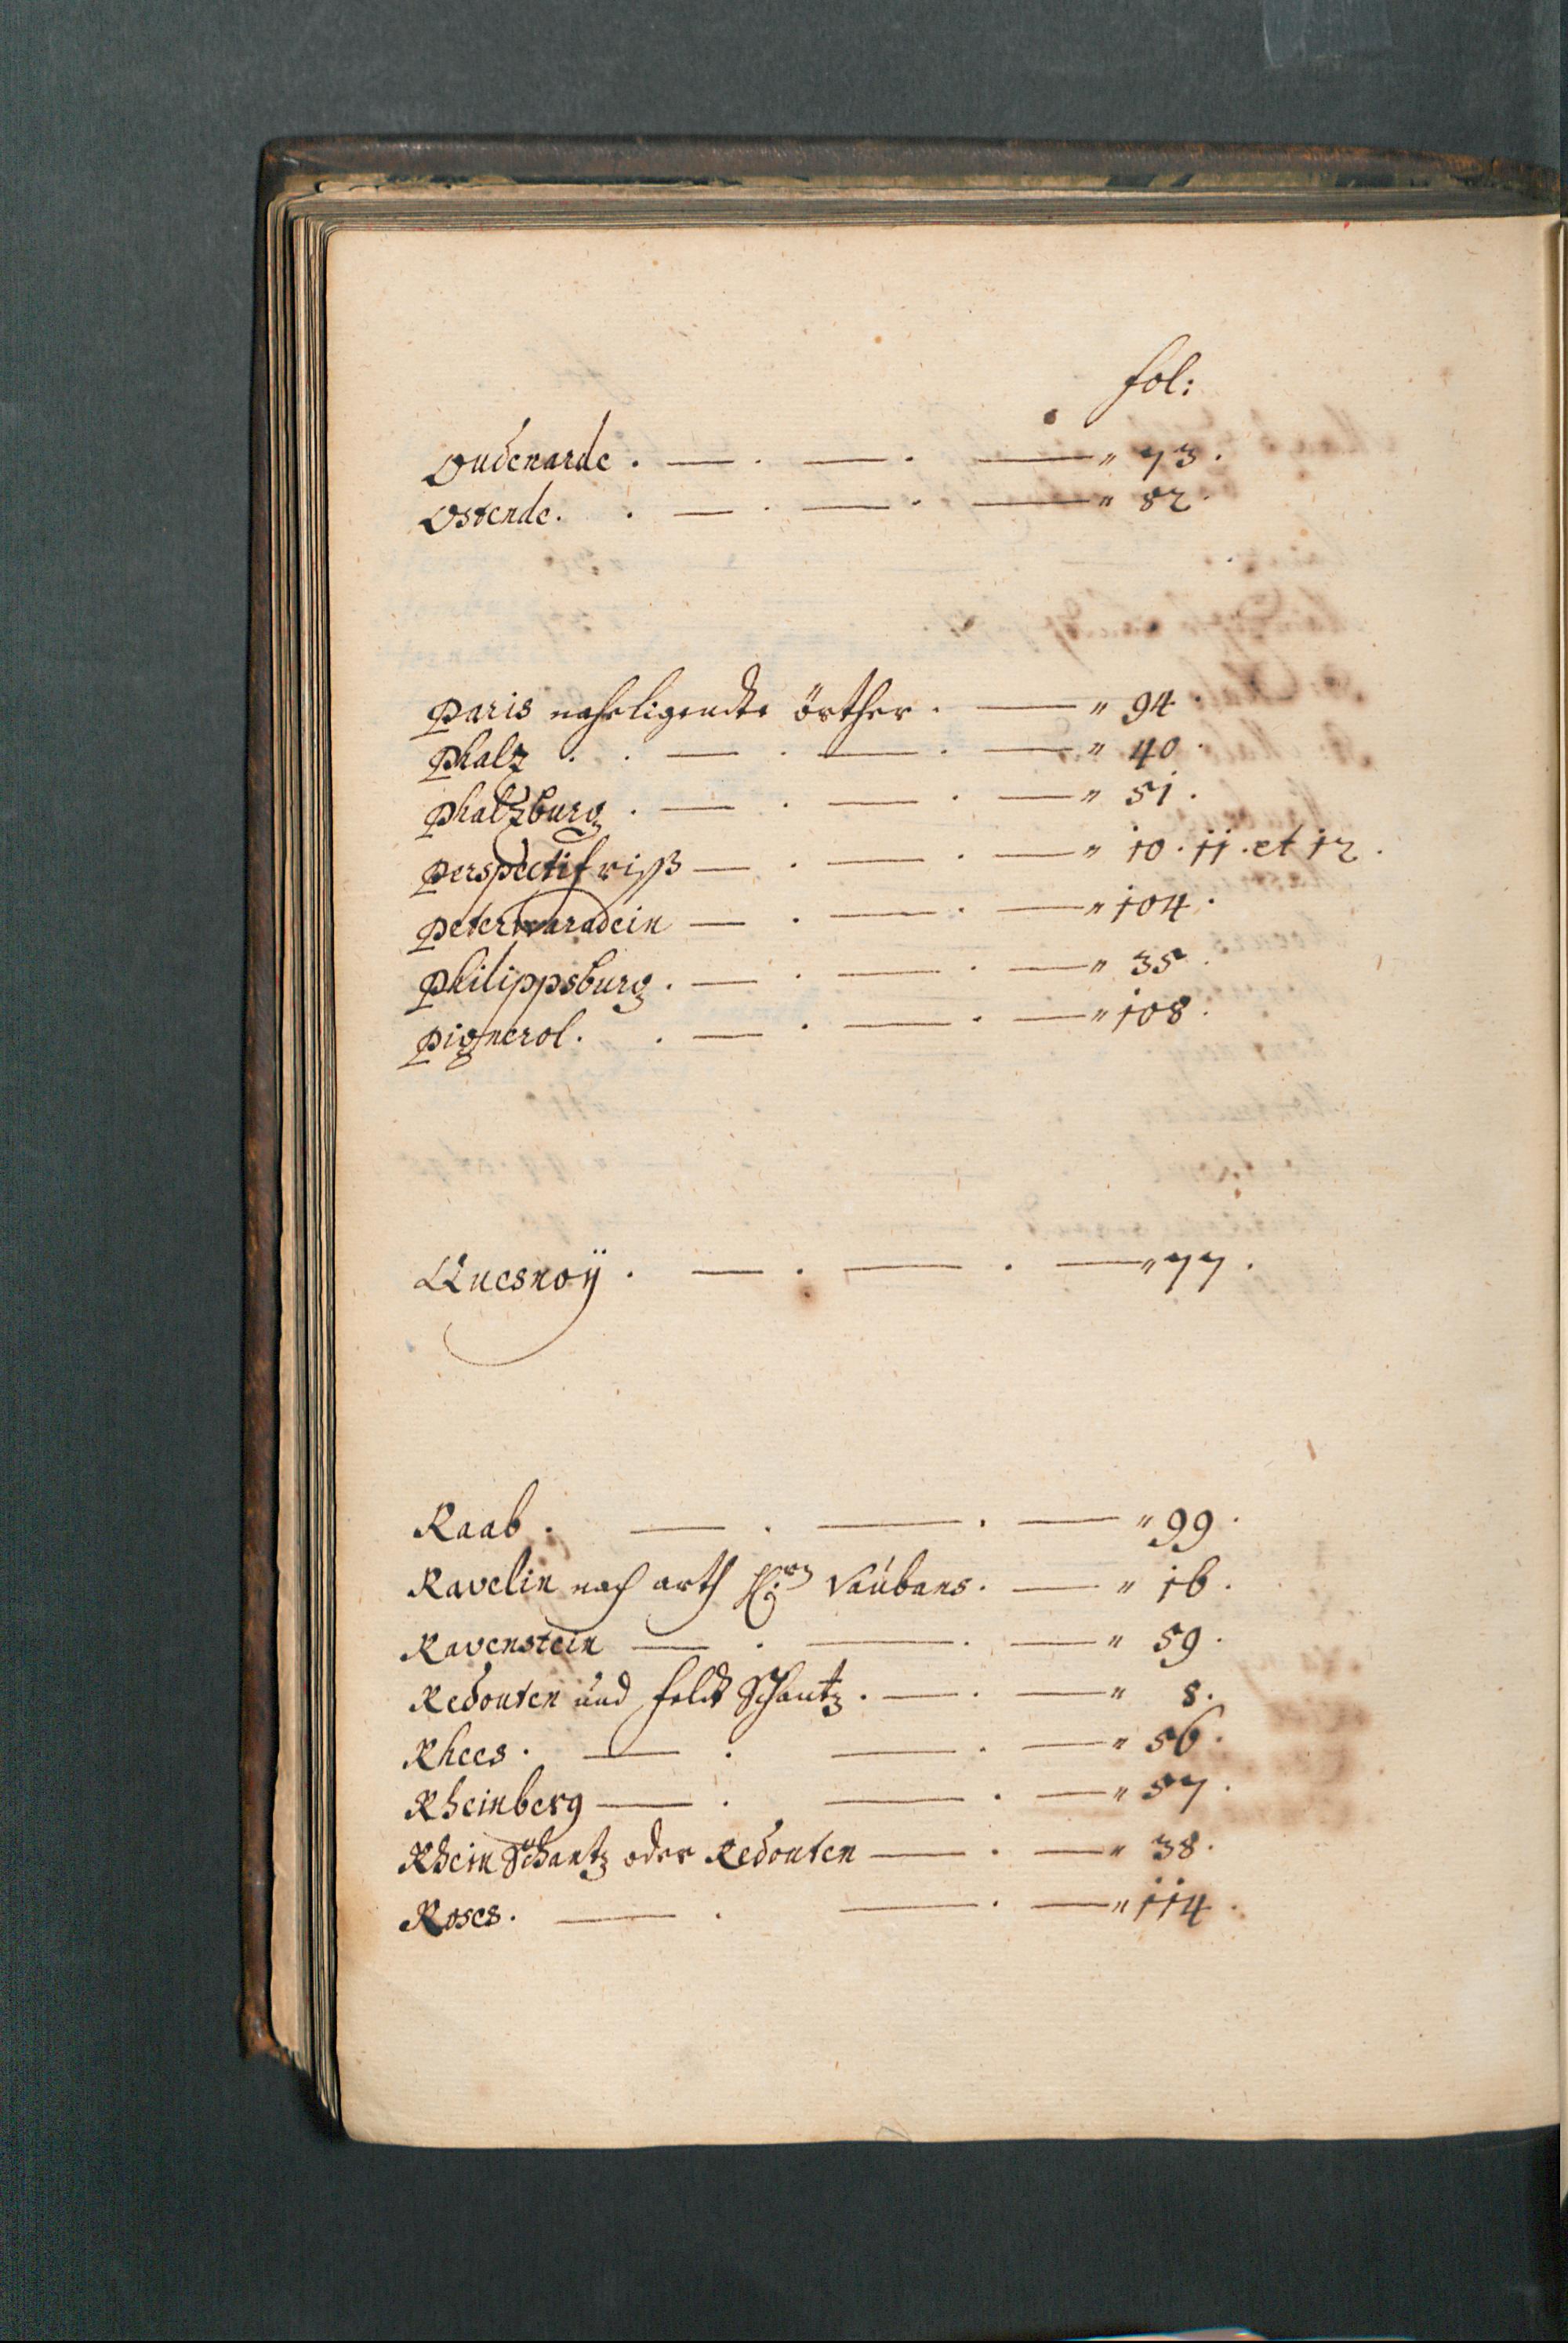 fol:
Oudenarde . — . — . — " 73 .
Ostende . . — . — . — " 82 .
Paris naheligendte örther . — " 94
Phalz . . — . — . — " 40 .
Phaltzburg . — . — . — " 51 .
Perspectif riß — . — . — " 10 . 11 . et 12 .
Peterwaradein — . — . — " 104 .
Philippsburg . — . — . — " 35 .
Pignerol . . — . — . — " 108 .
Quesnoÿ . — . — . — " 77 .
Raab . — . — . — " 99 .
Ravelin nach arth Vaubans . — " 16 .
Ravenstein — . — . — " 59 .
Redouten und feldt Schantz . — . — " 8 .
Rhees . — . — . — " 56 .
Rheinberg — . — . — " 57 .
Rhein Schantz oder Redouten — . — " 38 .
Roses . — . — . — " 114 .